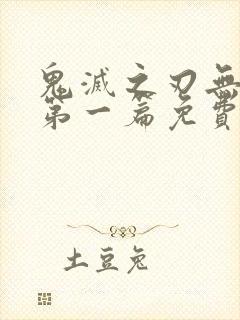 鬼滅之刃無
第一篇免費
土豆兔